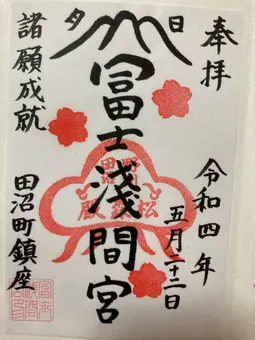 奉拝
令和四年
五月二十二日
日
夕
冨士浅間宮
諸願成就
田沼町鎮座